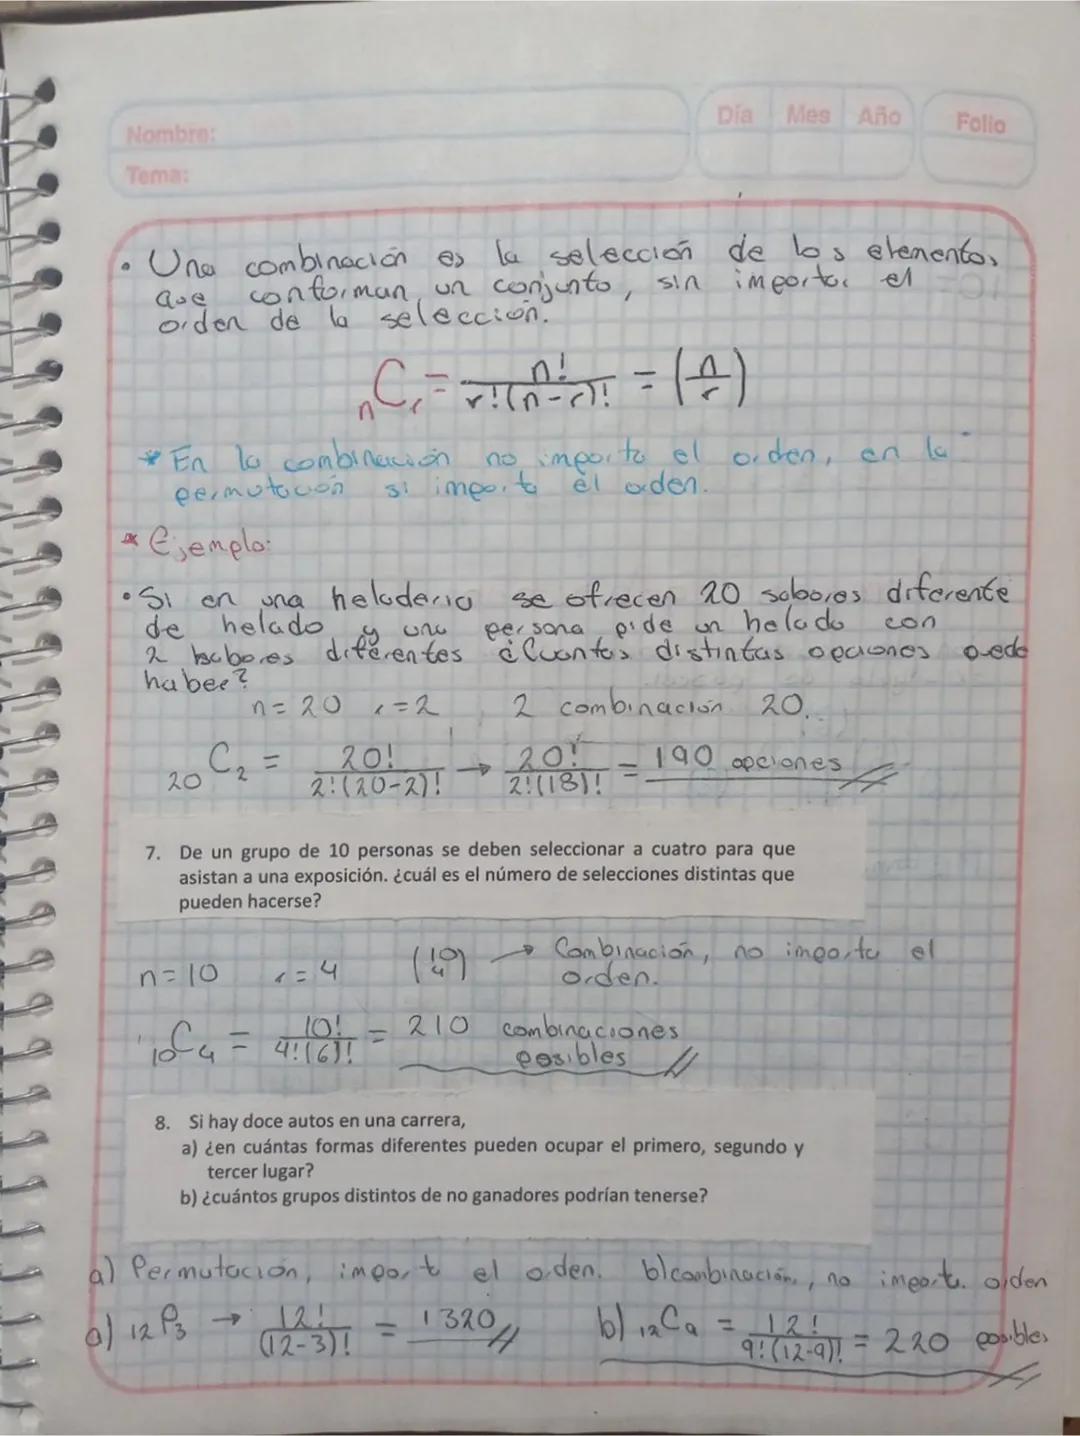 Día Mes Año Folio
Nombre:
Tema:
• Una combinación es la selección de los elementos
que conforman un conjunto, sin importar el
orden de la selección.
nCr = n!/r!(n-r)! = (n/r)
* En la combinación no importa el orden, en la
permutación si importa el orden.
* Ejemplo:
• Si en una heladeria se ofrecen 20 sabores diferente
de helado y una persona pide un helado con
2 sabores diferentes ¿Cuantas distintas opciones puede
haber?
n=20 r=2 2 combinación 20.
20C2 = 20!/2!(20-2)! → 20!/2!(18)! = 190 opciones
7. De un grupo de 10 personas se deben seleccionar a cuatro para que
asistan a una exposición. ¿cuál es el número de selecciones distintas que
pueden hacerse?
n=10 r=4 (10 4) → Combinación, no importa el
orden.
10C4 = 10!/4!(6)! = 210 combinaciones
posibles
8. Si hay doce autos en una carrera,
a) ¿en cuántas formas diferentes pueden ocupar el primero, segundo y
tercer lugar?
b) ¿cuántos grupos distintos de no ganadores podrían tenerse?
a) Permutación, import el orden. b) combinación, no import. orden
a) 12P3 → 12!/(12-3)! = 1320 b) 12C9 = 12!/9!(12-9)! = 220 posibles